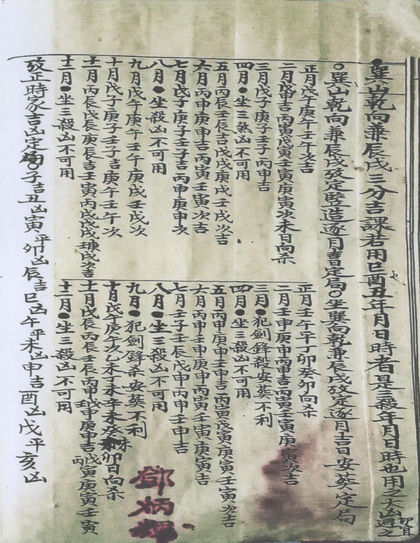 巽山乾向兼辰戌三分吉課若用巳酉丑年月日時者是三殺年月日時也用之大凶切宜避之
○巽山乾向兼辰戌孜定竪造逐月吉日定局○坐巽向乾兼辰戌孜定逐月吉日安葬定局
正月戊午庚午壬午次吉
二月戊申吉丙寅戊寅壬寅庚寅次未日向杀
三月戊子庚子壬子丙申吉
四月●坐三煞凶不可用
五月丙辰壬辰吉庚戌戊戌壬戌次吉
六月丙申庚申吉丙寅壬寅次吉
七月戊子庚子壬子吉丙申庚申次
八月●坐三殺凶不可用
九月戊午庚午壬午庚戌壬戌次
十月戊子庚子壬子吉庚午壬午次
十一月丙辰戊辰庚辰壬辰壬寅丙戌戊戌次吉
十二月●坐三殺凶不可用
正月壬午丙午丁卯癸卯日向杀
二月壬申庚申丙申吉丙寅壬寅庚寅次吉
三月●犯劍鋒殺安葬不利
四月●坐三殺凶不可用
五月丙申壬申庚申吉丙寅戊寅庚寅壬寅次吉
六月丙申壬申庚申吉丙寅壬寅庚寅吉
七月壬子壬辰戊申丙申壬申吉
八月●坐三殺凶不可用
九月●犯劍鋒殺安葬不利
十月庚午乙未丁未辛未卯日向杀
十一月壬辰丙申壬申庚申丙寅庚寅壬寅
十二月●坐三殺凶不可用
孜正時家吉凶定局○子吉丑凶寅平卯凶辰吉巳凶午平未凶申吉酉凶戌平亥凶
鄧炳